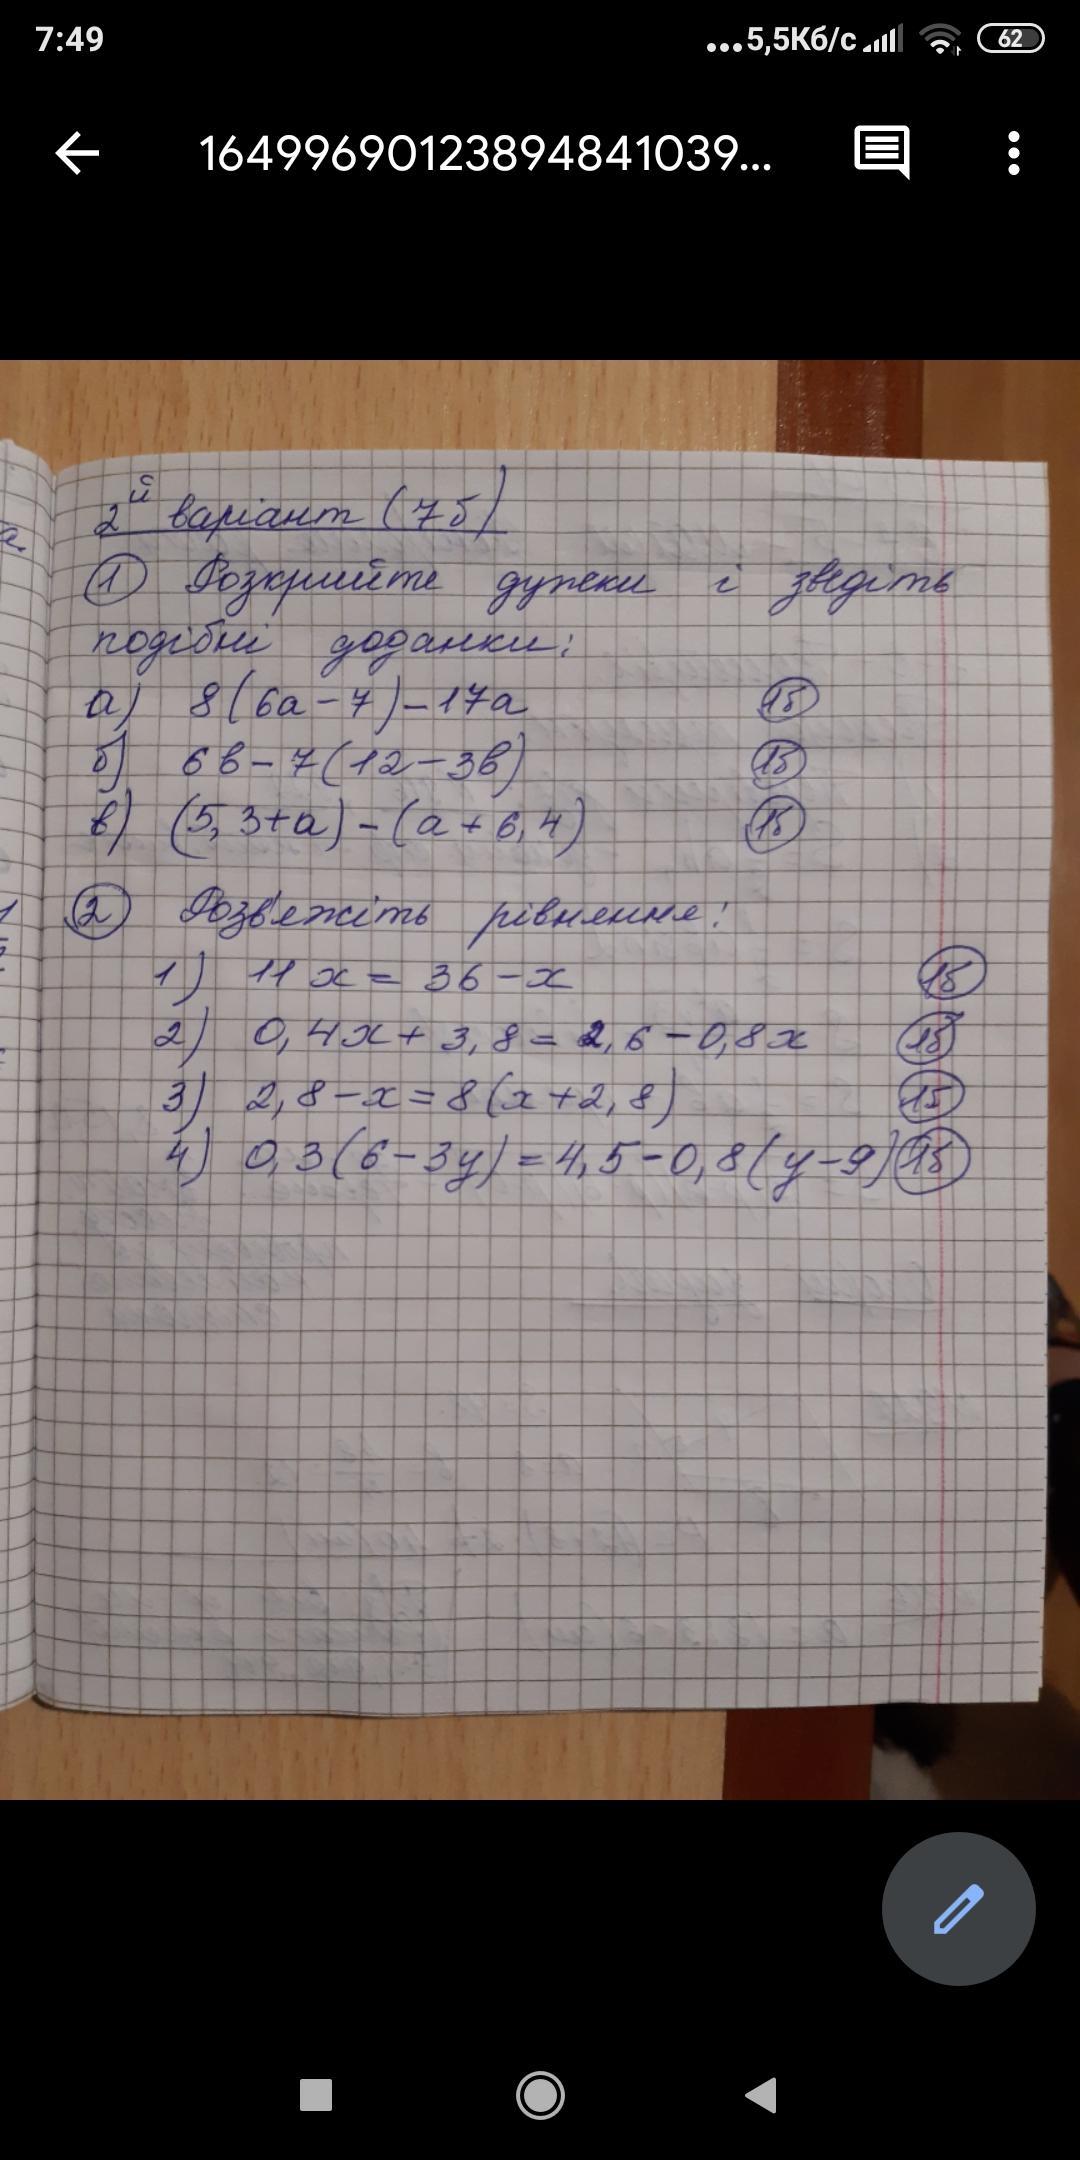 7:49
...5,5Кб/с
62
16499690123894841039...
2й варіант (7б)
① Розкрийте дужки і зведіть
подібні доданки:
а) 8(6а-7)-17а 1б
б) 6в-7(12-3в) 1б
в) (5,3+а)-(а+6,4) 1б
② Розв'яжіть рівняння:
1) 11x=36-x 1б
2) 0,4x+3,8=2,6-0,8x 1б
3) 2,8-x=8(x+2,8) 1б
4) 0,3(6-3y)=4,5-0,8(y-9) 1б